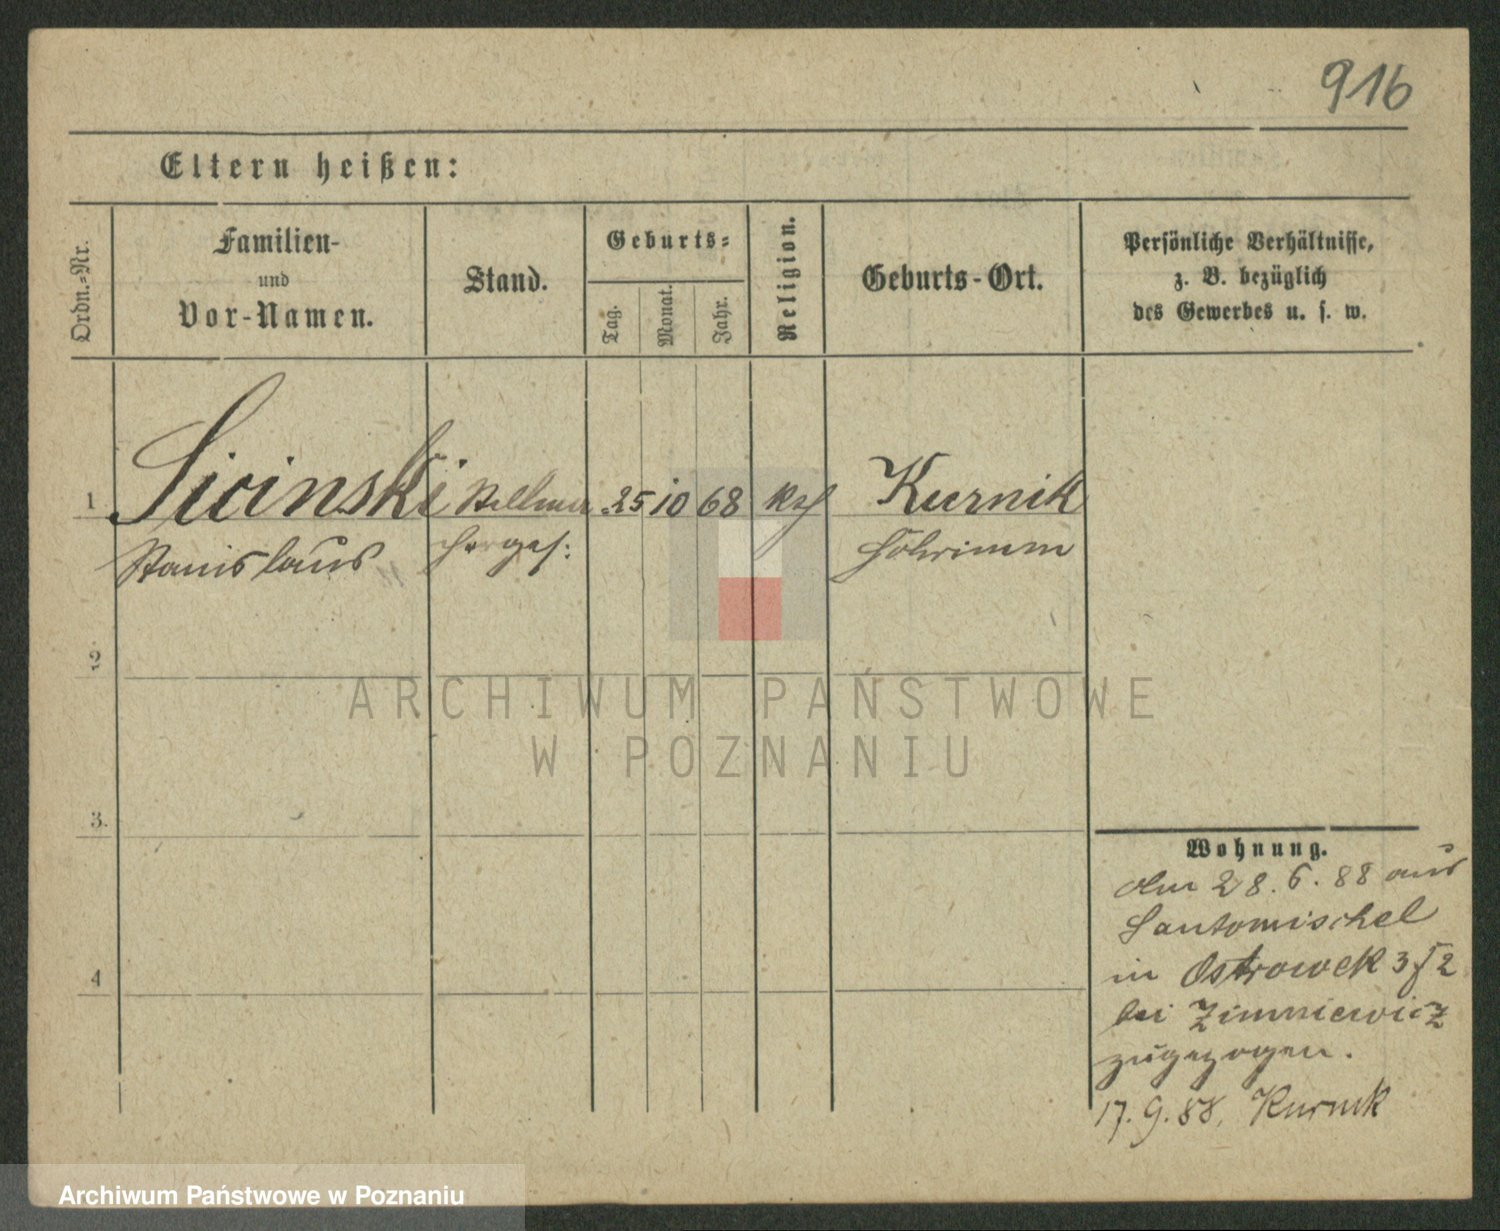 916
Eltern heißen:
Ordn.-Nr.
Familien-
und
Vor-Namen.
Stand.
Geburts-
Tag.
Monat.
Jahr.
Religion.
Geburts-Ort.
Persönliche Verhältnisse,
z. B. bezüglich
des Gewerbes u. s. w.
1 Sicinski Stellma 25 10 68 kth Kurnik
Stanislaus cherges: Schrimm
2
3.
4
ARCHIWUM PAŃSTWOWE
W POZNANIU
Wohnung.
Am 28. 6. 88 aus
Santomischel
in Ostrowek 3/2
bei Zimniewicz
zugezogen.
17. 9. 88. Kurnik
Archiwum Państwowe w Poznaniu